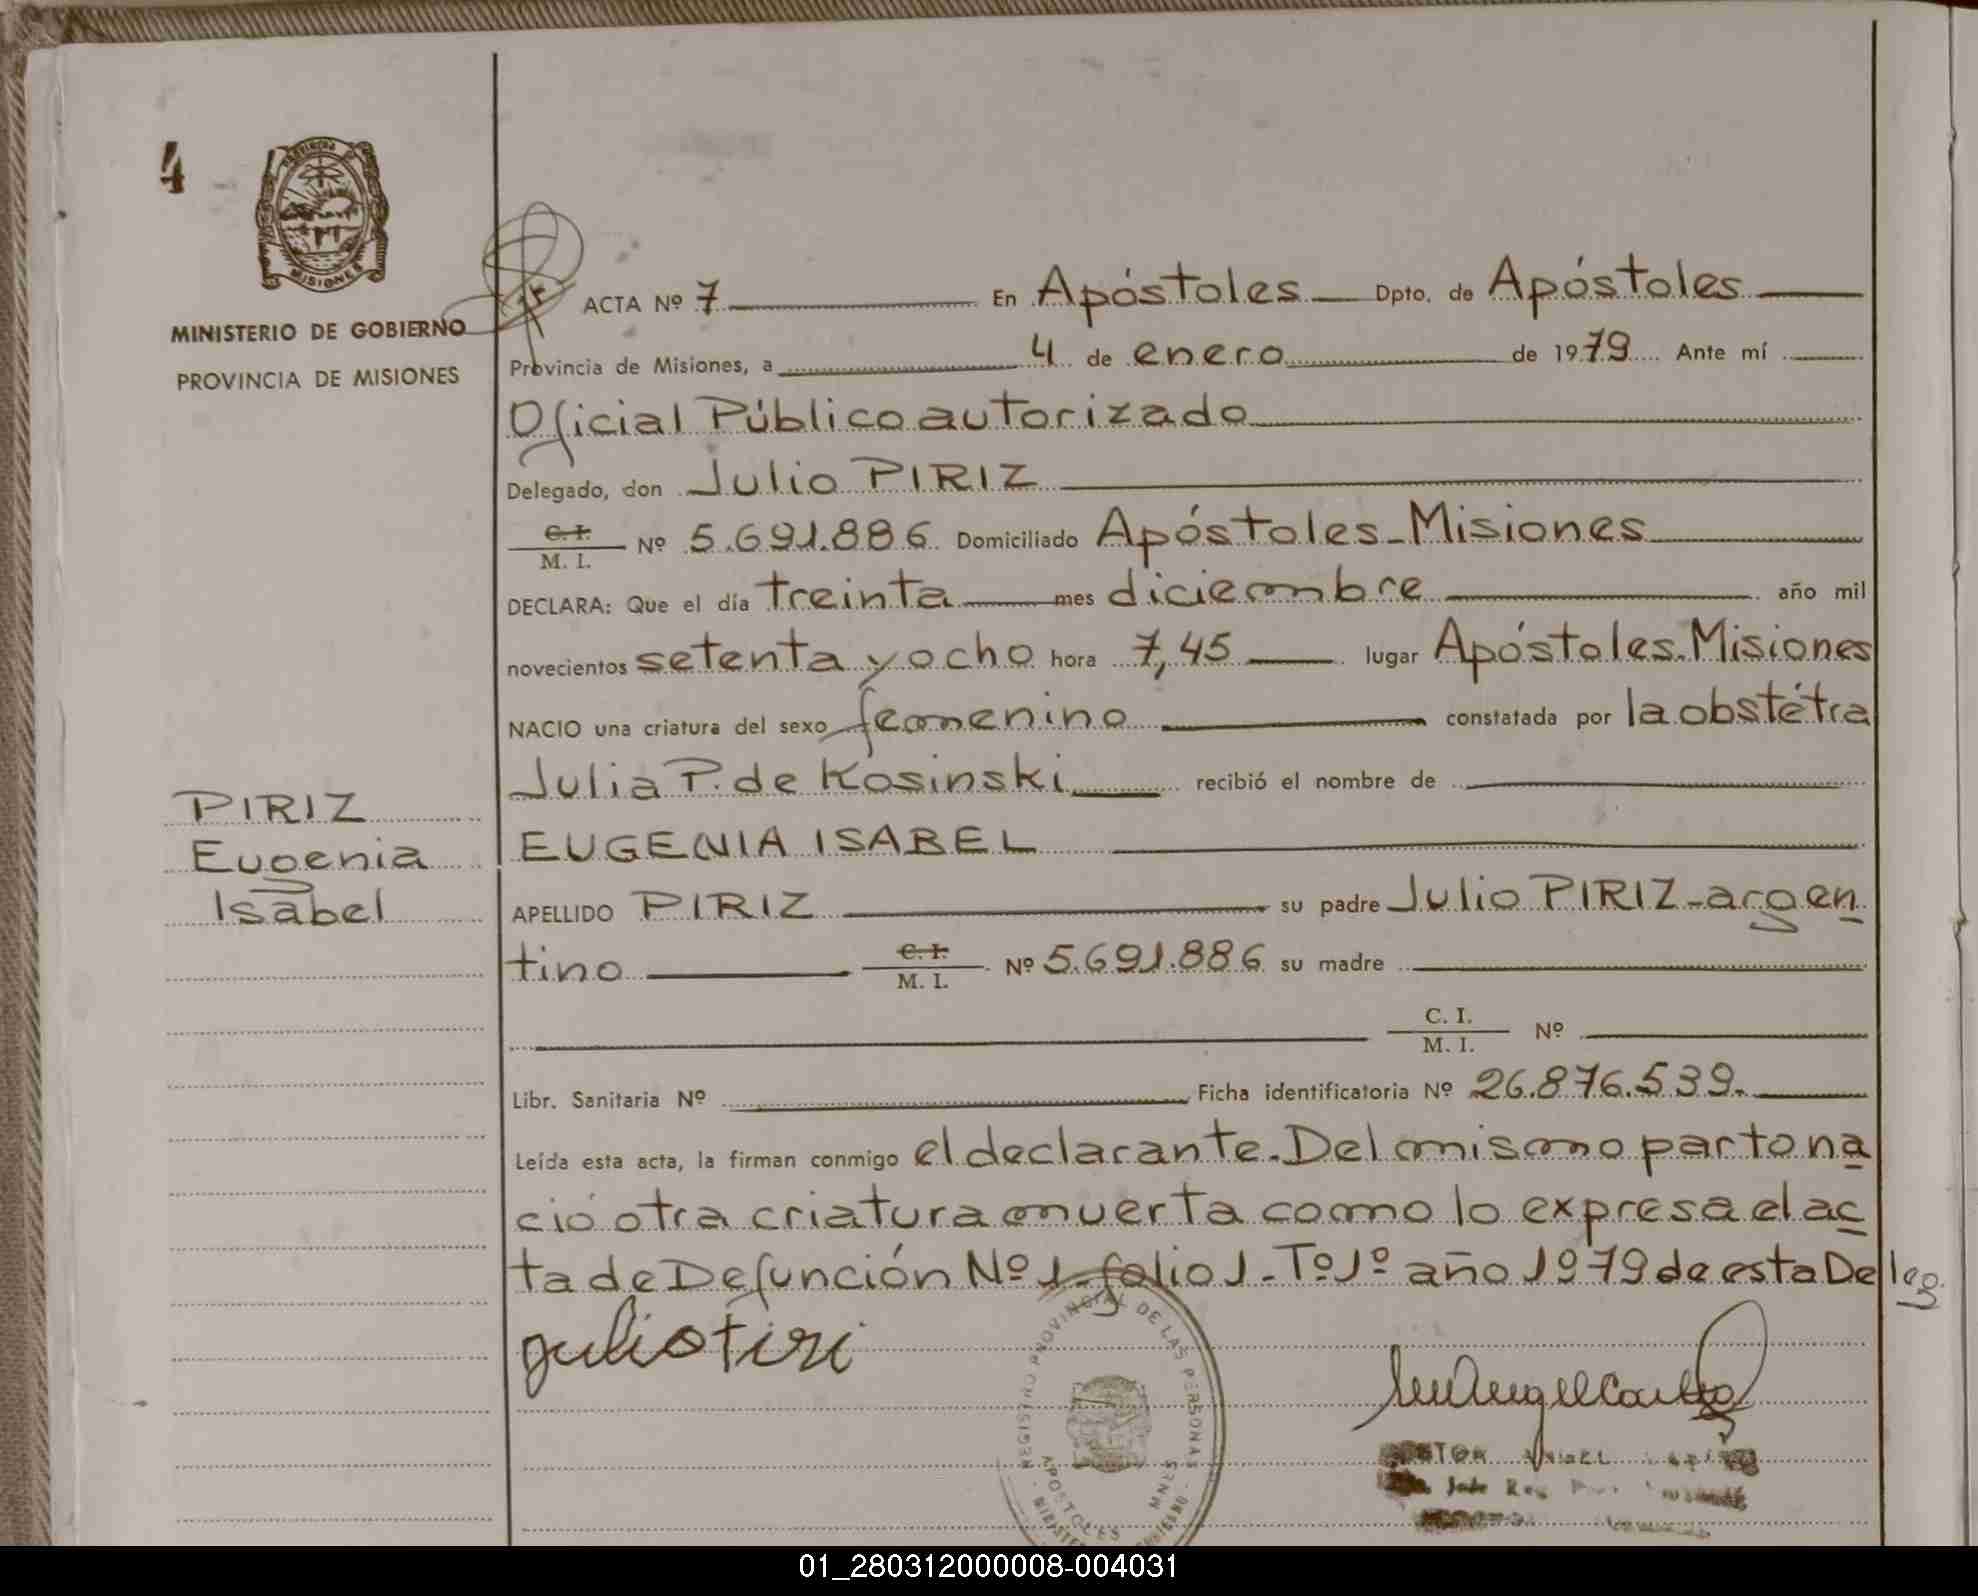 4
PROVINCIA DE
MISIONES
MINISTERIO DE GOBIERNO
PROVINCIA DE MISIONES
ACTA Nº 7 En Apóstoles Dpto. de Apóstoles
Provincia de Misiones, a 4 de enero de 1979 Ante mí
Oficial Público autorizado
Delegado, don Julio PIRIZ
C. I.
M. I. Nº 5.691.886 Domiciliado Apóstoles-Misiones
DECLARA: Que el día treinta mes diciembre año mil
novecientos setenta y ocho hora 7,45 lugar Apóstoles-Misiones
NACIO una criatura del sexo femenino constatada por la obstétra
Julia P. de Kosinski recibió el nombre de
EUGENIA ISABEL
PIRIZ
Eugenia
Isabel
APELLIDO PIRIZ su padre Julio PIRIZ-argen
tino C. I.
M. I. Nº 5.691.886 su madre
C. I.
M. I. Nº
Libr. Sanitaria Nº Ficha identificatoria Nº 26.876.539.
Leída esta acta, la firman conmigo el declarante. Del mismo parto na
ció otra criatura muerta como lo expresa el ac
ta de Defunción Nº 1-folio 1-Tº 1º año 1979 de esta Deleg
REGISTRO PROVINCIAL DE LAS PERSONAS
APOSTOLES MNES
01_280312000008-004031